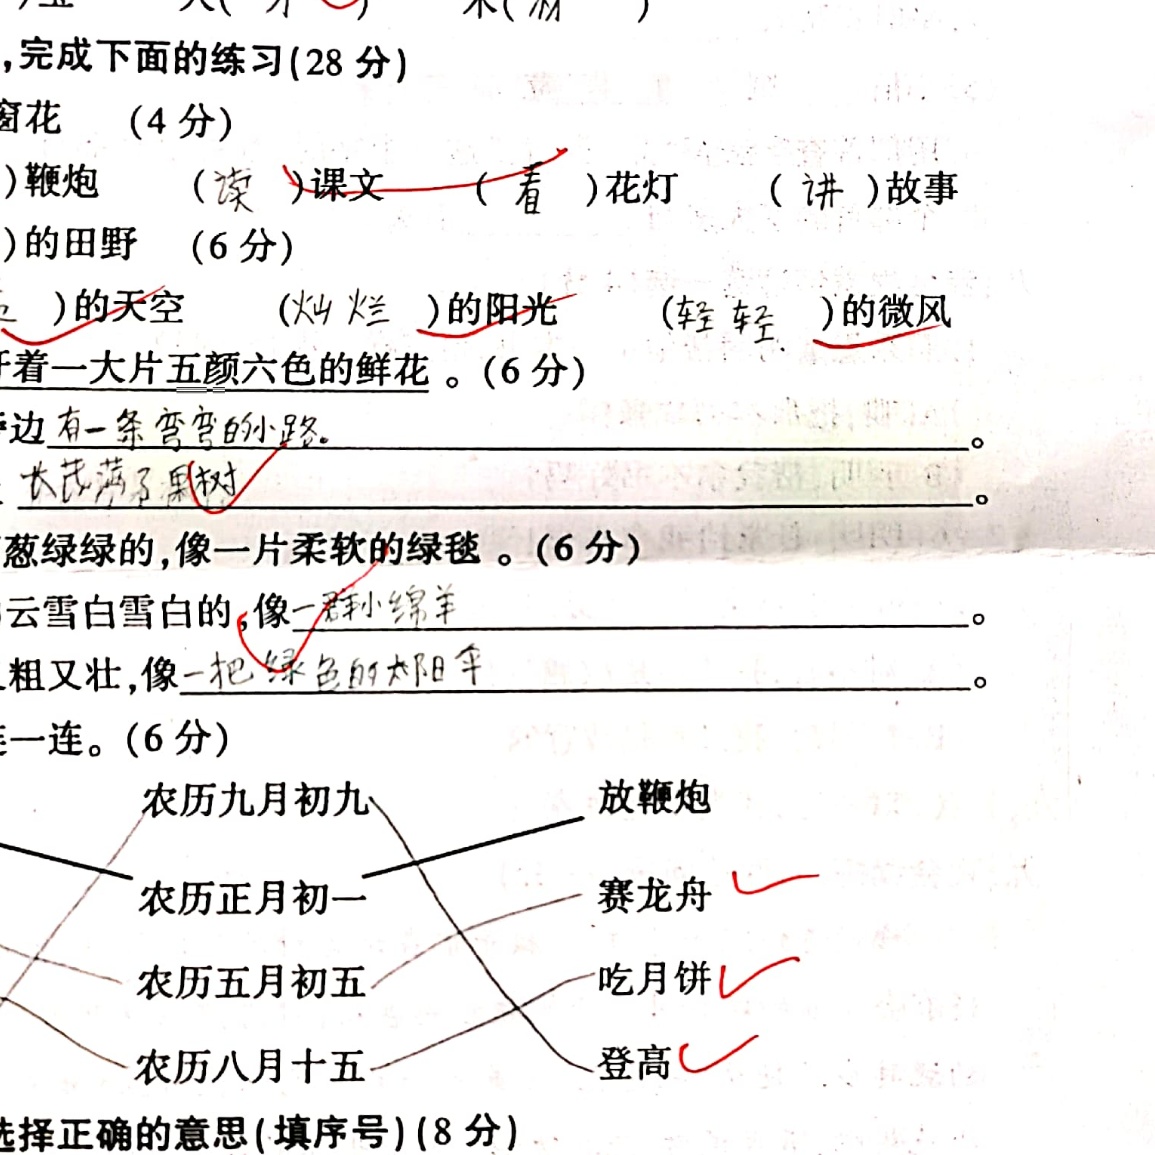 ,完成下面的练习(28分)
窗花 (4分)
)鞭炮 (读)课文 (看)花灯 (讲)故事
)的田野 (6分)
)的天空 (灿烂)的阳光 (轻轻)的微风
开着一大片五颜六色的鲜花。(6分)
边有一条弯弯的小路。。
满了果树。
葱绿绿的,像一片柔软的绿毯。(6分)
云雪白雪白的,像一群小绵羊。
粗又壮,像一把绿色的太阳伞。
连一连。(6分)
农历九月初九 放鞭炮
农历正月初一 赛龙舟
农历五月初五 吃月饼
农历八月十五 登高
选择正确的意思(填序号)(8分)